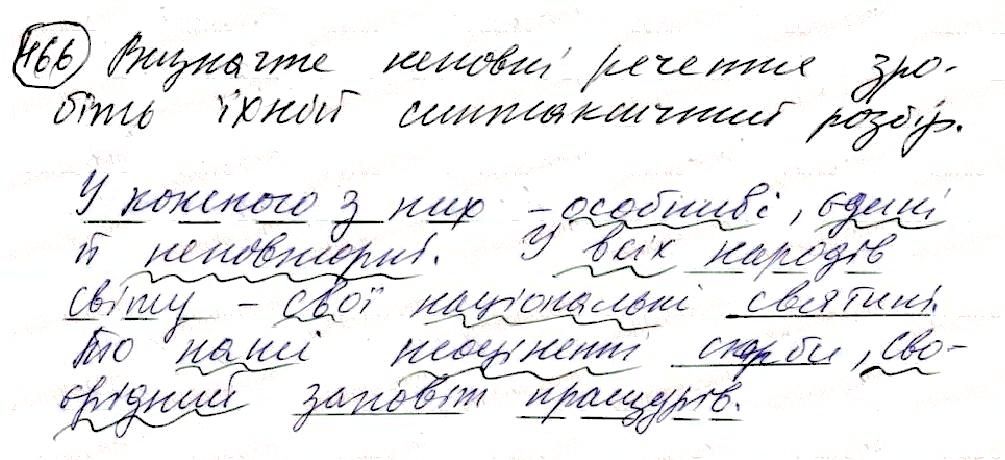 466 Визначте неповні речення зро-
біть їхній синтаксичний розбір.
У кожного з них - особливі, єдині
й неповторні. У всіх народів
світу - свої національні святині.
То наші неоціненні скарби, сво-
єрідний заповіт пращурів.